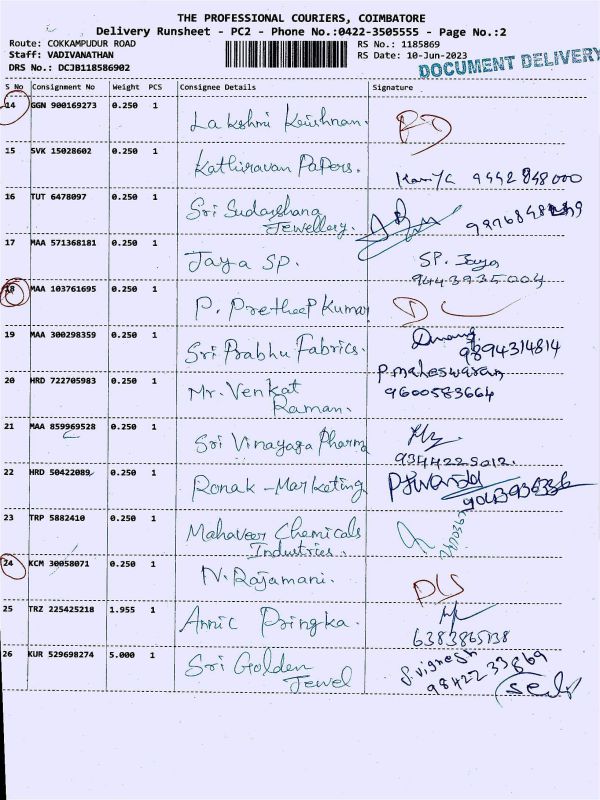 THE PROFESSIONAL COURIERS, COIMBATORE
Delivery Runsheet - PC2 - Phone No.:0422-3505555 - Page No.:2
Route: COKKAMPUDUR ROAD
Staff: VADIVANATHAN
DRS No.: DCJB118586902
RS No.: 1185869
RS Date: 10-Jun-2023
DOCUMENT DELIVERY
S No Consignment No Weight PCS Consignee Details Signature
14 GGN 900169273 0.250 1
Lakshmi Krishnan.
15 SVK 15028602 0.250 1
Kathiravan Papers.
9442848000
16 TUT 6478097 0.250 1
Sri Sudarshana
Jewellery.
17 MAA 571368181 0.250 1
Jaya SP. SP. Jaya
9443935004
18 MAA 103761695 0.250 1
P. Pretheep Kumar
19 MAA 300298359 0.250 1
Sri Prabhu Fabrics. 9894314814
20 HRD 722705983 0.250 1 P. maheswaran
Mr. Venkat 9600583664
Raman.
21 MAA 859969528 0.250 1
Sri Vinayaga Pharma
9344225012.
22 HRD 50422089 0.250 1
Ronak - Marketing
23 TRP 5882410 0.250 1
Mahaveer Chemicals
Industries.
24 KCM 30058071 0.250 1
N. Rajamani.
25 TRZ 225425218 1.955 1
Annic Pringka.
6383865138
26 KUR 529698274 5.000 1 S. Vignesh
Sri Golden 98422 33869
Jewel Seal